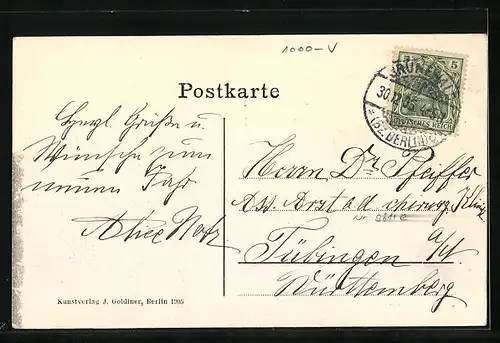 1000-V
Postkarte
GRUNEWALD
30.12.05
(BZ. BERLIN)
5
DEUTSCHES REICH
Herzl. Grüße u.
Wünsche zum
neuen Jahr
Alice
Herrn Dr Pfeiffer
Ass. Arzt a d chirurg. Klinik
Tübingen a/N
Württemberg
Kunstverlag J. Goldiner, Berlin 1905